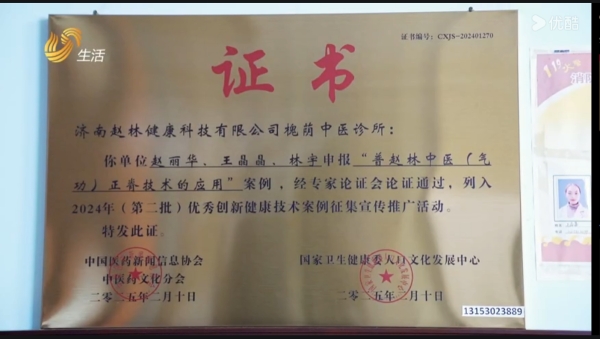 生活
优酷
证书编号：CXJS-202401270
证书
济南赵林健康科技有限公司槐荫中医诊所：
你单位赵丽华、王晶晶、林宇申报“普赵林中医（气
功）正脊技术的应用”案例，经专家论证会论证通过，列入
2024年（第二批）优秀创新健康技术案例征集宣传推广活动。
特发此证。
中国医药新闻信息协会
中医药文化分会
二〇二五年二月十日
国家卫生健康委人口文化发展中心
二〇二五年二月十日
13153023889